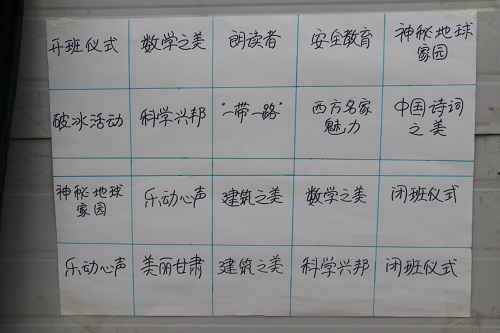 开班仪式 数学之美 朗读者 安全教育 神秘地球家园
破冰活动 科学兴邦 "一带一路" 西方名家魅力 中国诗词之美
神秘地球家园 乐动心声 建筑之美 数学之美 闭班仪式
乐动心声 美丽甘肃 建筑之美 科学兴邦 闭班仪式